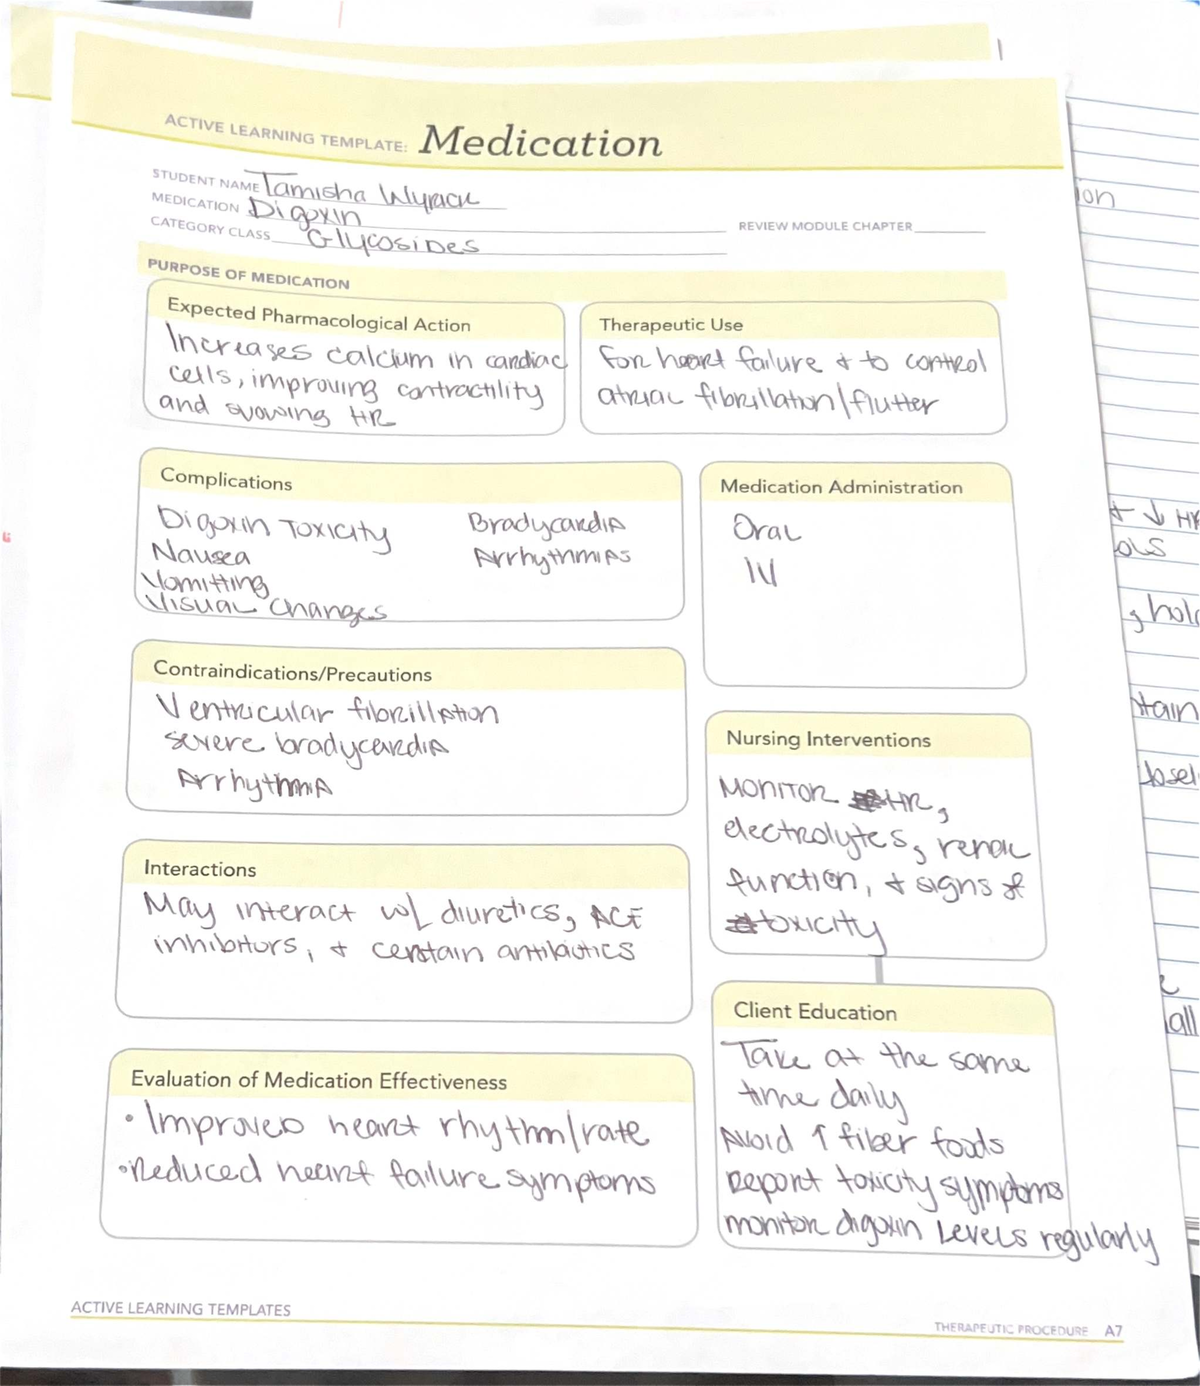 ACTIVE LEARNING TEMPLATE: Medication
STUDENT NAME Tamisha Wyrick
MEDICATION Digoxin
REVIEW MODULE CHAPTER
CATEGORY CLASS Glycosides
PURPOSE OF MEDICATION
Expected Pharmacological Action
Increases calcium in cardiac
cells, improving contractility
and slowing HR
Therapeutic Use
For heart failure & to control
atrial fibrillation/flutter
Complications
Digoxin Toxicity
Nausea
Vomitting
Visual changes
Bradycardia
Arrhythmias
Medication Administration
Oral
IV
Contraindications/Precautions
Ventricular fibrillation
severe bradycardia
Arrhythmia
Nursing Interventions
Monitor HR,
electrolytes, renal
function, & signs of
toxicity
Interactions
May interact w/ diuretics, ACE
inhibitors, & certain antibiotics
Client Education
Take at the same
time daily
Avoid ↑ fiber foods
Report toxicity symptoms
monitor digoxin levels regularly
Evaluation of Medication Effectiveness
• Improved heart rhythm/rate
• Reduced heart failure symptoms
ACTIVE LEARNING TEMPLATES
THERAPEUTIC PROCEDURE A7
ion
↓ HR
ols
hold
tain
losel
all